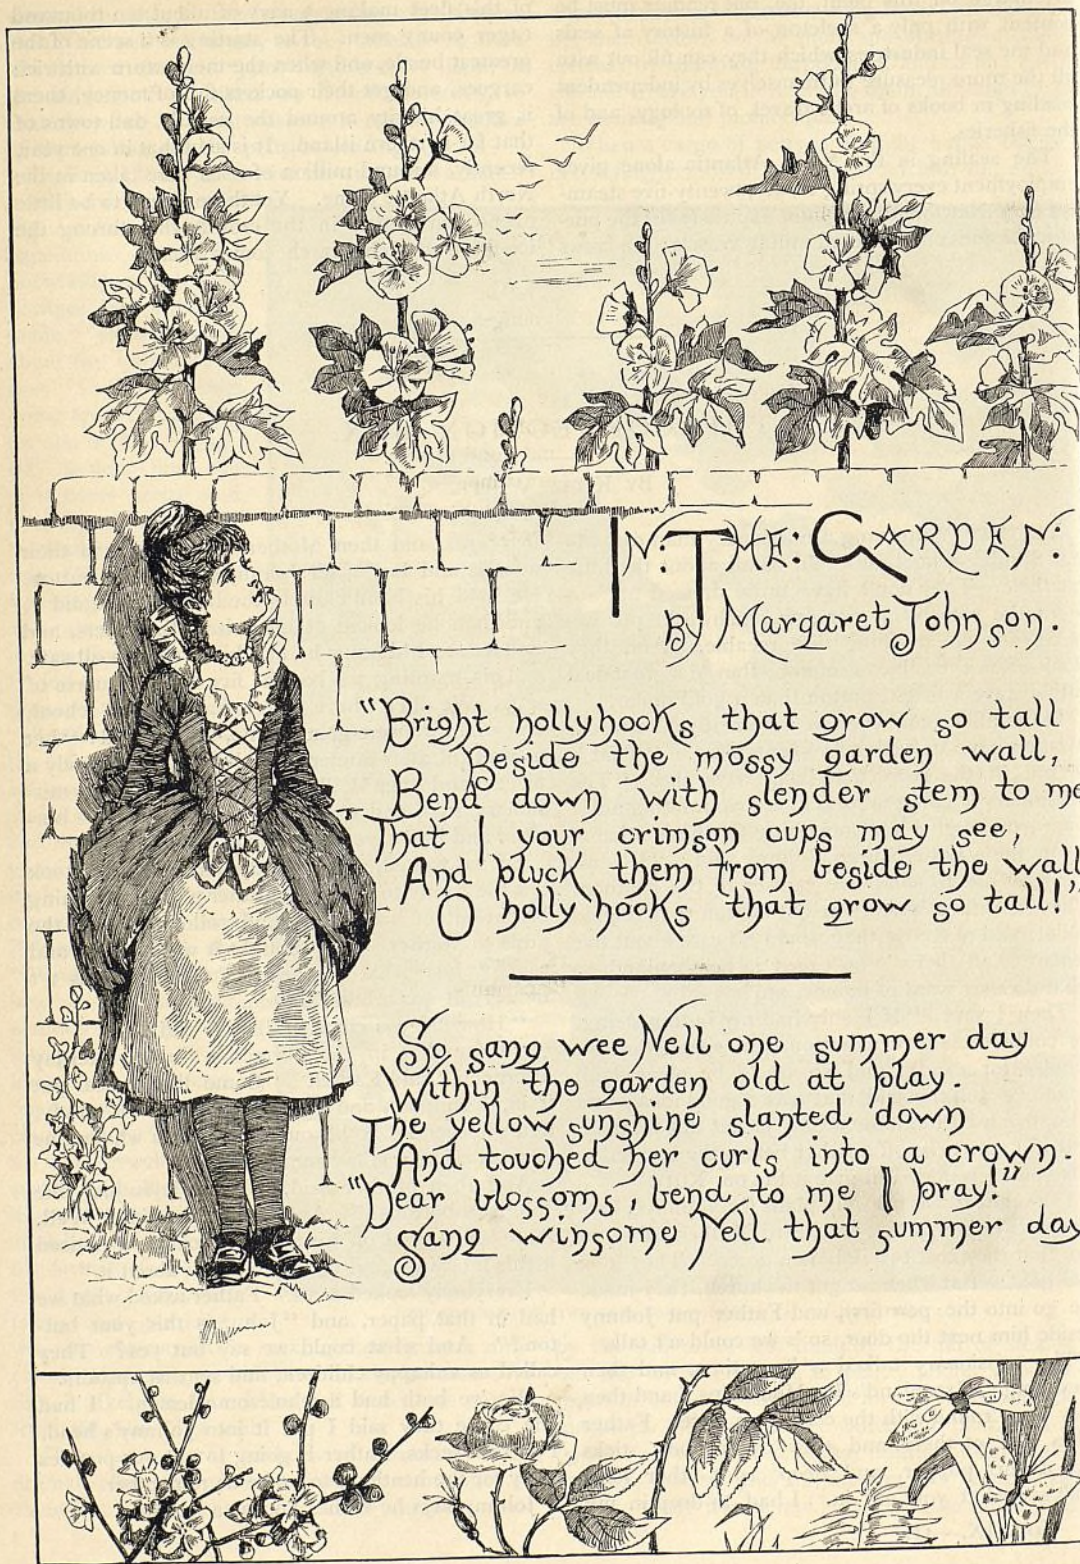 IN: THE: GARDEN:
By Margaret Johnson.
"Bright hollyhocks that grow so tall
Beside the mossy garden wall,
Bend down with slender stem to me
That I your crimson cups may see,
And pluck them from beside the wall
O hollyhocks that grow so tall!"
So sang wee Nell one summer day
Within the garden old at play.
The yellow sunshine slanted down
And touched her curls into a crown.
"Dear blossoms, bend to me I pray!"
Sang winsome Nell that summer day